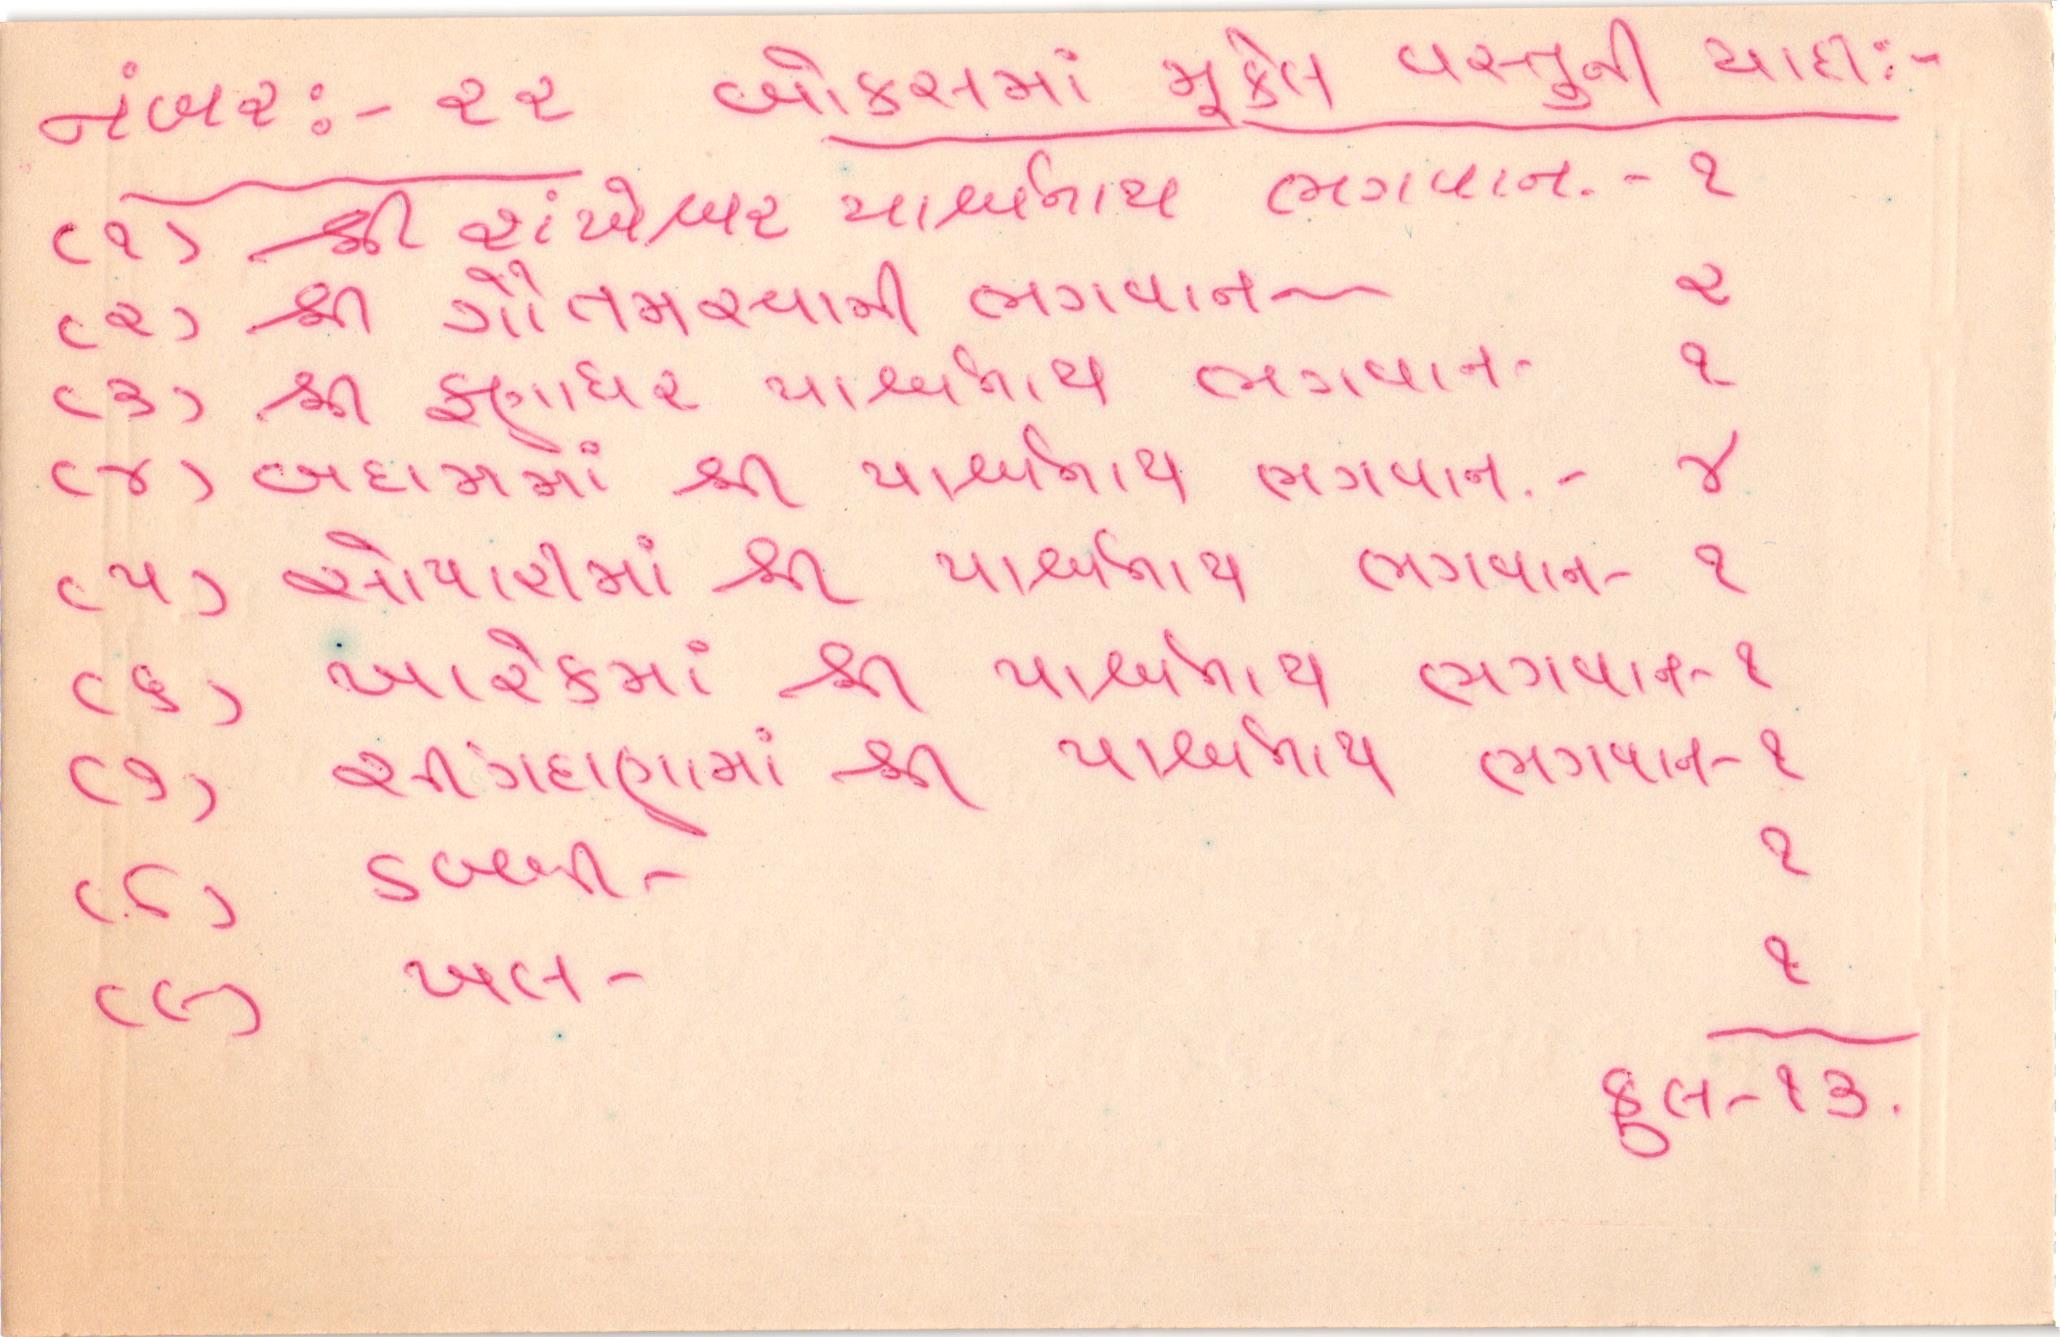 નંબર:- ૨૨ બોકસમાં મૂકેલ વસ્તુની યાદી:-
(૧) શ્રી શંખેશ્વર પાર્શ્વનાથ ભગવાન.- ૧
(૨) શ્રી ગૌતમસ્વામી ભગવાન— ૨
(૩) શ્રી ફણાધર પાર્શ્વનાથ ભગવાન- ૧
(૪) બદામમાં શ્રી પાર્શ્વનાથ ભગવાન.- ૪
(૫) સોપારીમાં શ્રી પાર્શ્વનાથ ભગવાન- ૧
(૬) ખારેકમાં શ્રી પાર્શ્વનાથ ભગવાન- ૧
(૭) સીંગદાણામાં શ્રી પાર્શ્વનાથ ભગવાન- ૧
(૮) ડબ્બી- ૧
(૯) ખલ- ૧
કુલ- ૧૩.